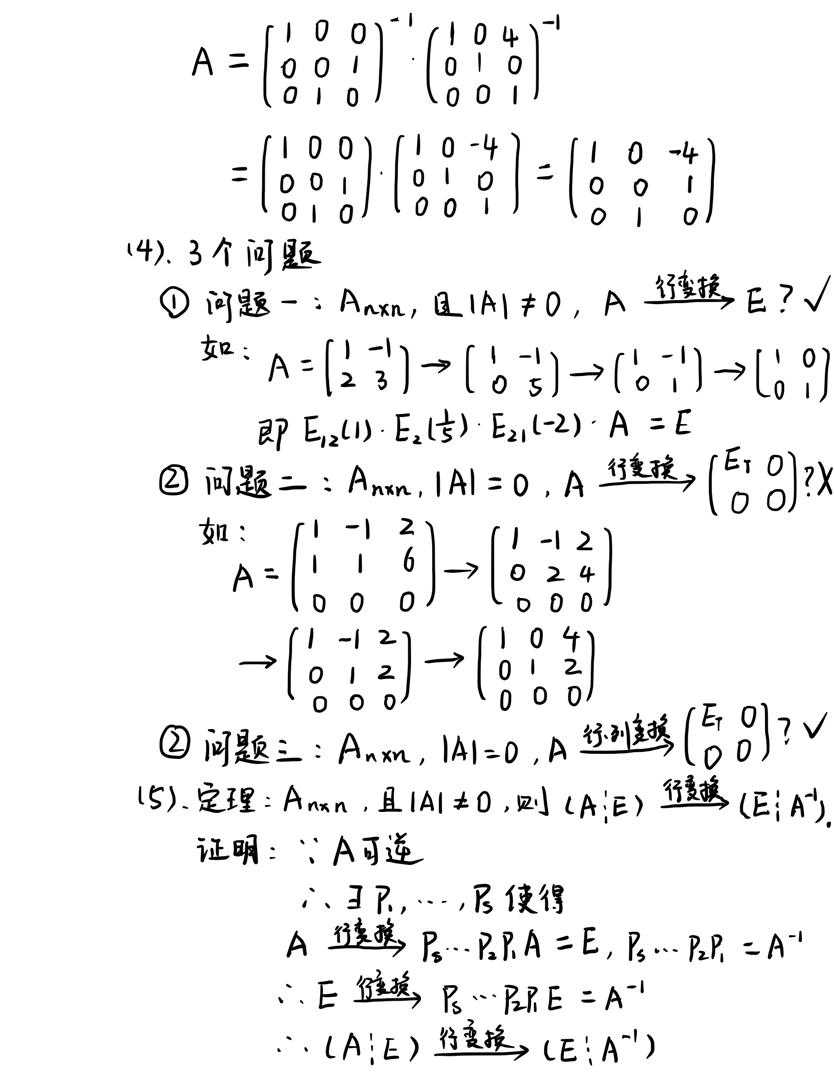 A = (1 0 0; 0 0 1; 0 1 0)^{-1} · (1 0 4; 0 1 0; 0 0 1)^{-1}
= (1 0 0; 0 0 1; 0 1 0) · (1 0 -4; 0 1 0; 0 0 1) = (1 0 -4; 0 0 1; 0 1 0)
(4). 3个问题
① 问题一：A_{n×n}, 且|A|≠0, A —行变换→ E ? √
如：A = (1 -1; 2 3) → (1 -1; 0 5) → (1 -1; 0 1) → (1 0; 0 1)
即 E_{12}(1) · E_2(1/5) · E_{21}(-2) · A = E
② 问题二：A_{n×n}, |A|=0, A —行变换→ (E_r 0; 0 0) ? X
如：
A = (1 -1 2; 1 1 6; 0 0 0) → (1 -1 2; 0 2 4; 0 0 0)
→ (1 -1 2; 0 1 2; 0 0 0) → (1 0 4; 0 1 2; 0 0 0)
② 问题三：A_{n×n}, |A|=0, A —行.列变换→ (E_r 0; 0 0) ? √
(5). 定理：A_{n×n}, 且|A|≠0, 则 (A¦E) —行变换→ (E¦A^{-1}).
证明：∵ A可逆
∴ ∃ P_1, ⋯, P_s 使得
A —行变换→ P_s⋯P_2P_1A = E, P_s⋯P_2P_1 = A^{-1}
∴ E —行变换→ P_s⋯P_2P_1E = A^{-1}
∴ (A¦E) —行变换→ (E¦A^{-1})